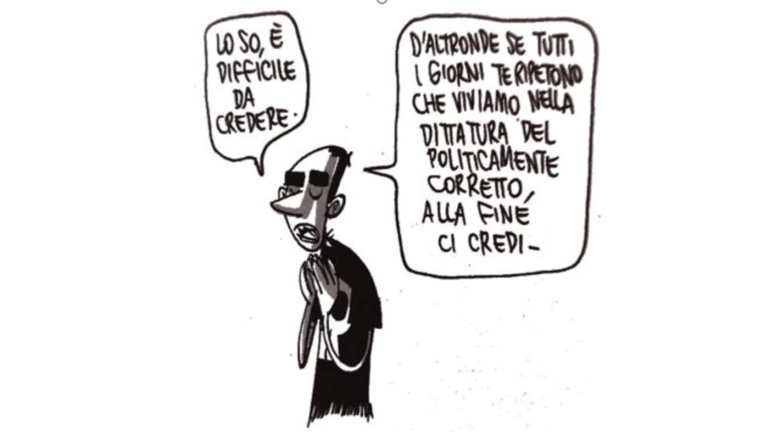 LO SO, È
DIFFICILE
DA
CREDERE.
D'ALTRONDE SE TUTTI
I GIORNI TE RIPETONO
CHE VIVIAMO NELLA
DITTATURA DEL
POLITICAMENTE
CORRETTO,
ALLA FINE
CI CREDI_